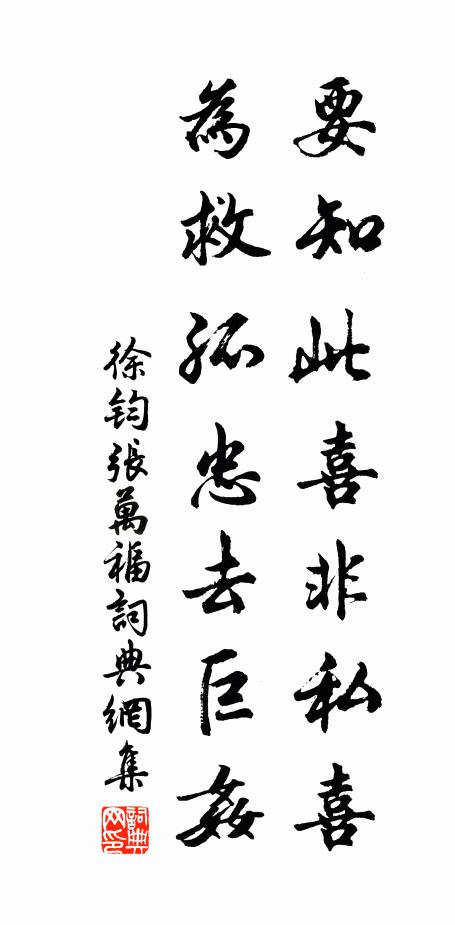 要知此喜非私喜
為救孤忠去巨姦
徐鈞張萬福詞典網集
詞典网印